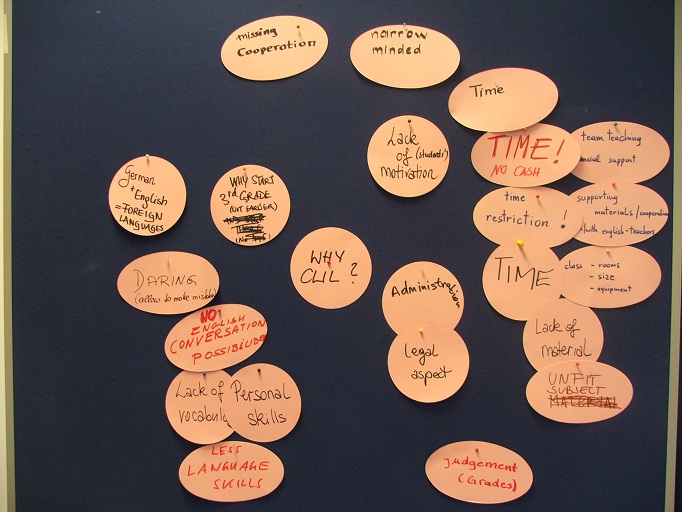 missing
Cooperation
narrow
minded
Time
TIME!
NO CASH
team teaching
support
Lack
of (students')
motivation
German
+ English
= FOREIGN
LANGUAGES
WHY START
3rd GRADE
(NOT EARLIER)
time
restriction !
supporting
materials/cooperation
with english-teachers
WHY
CLIL ?
DARING
(allow to make mistakes)
Administration
TIME
class - rooms
- size
- equipment
NO!
ENGLISH
CONVERSATION
POSSIBILI
Legal
aspect
Lack of
material
UNFIT
SUBJECT
MATERIAL
Lack of
Personal
skills
LESS
LANGUAGE
SKILLS
judgement
(Grades)